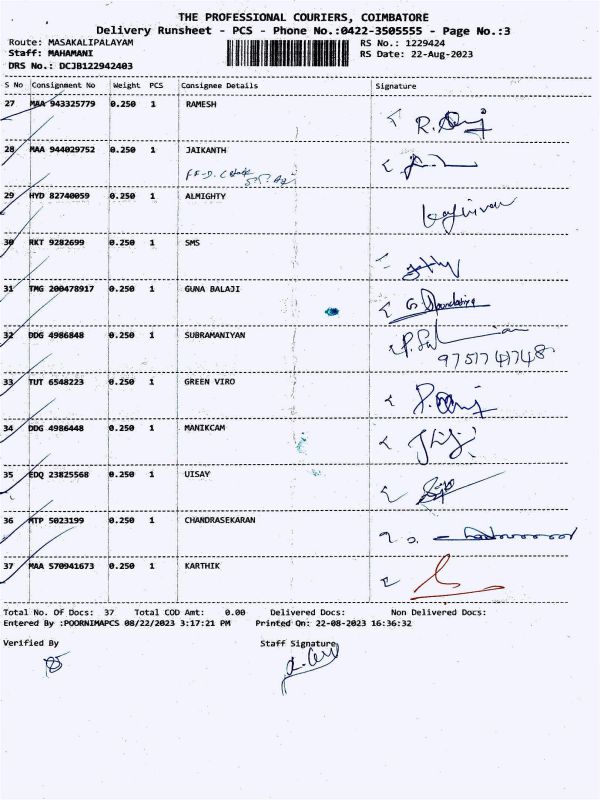 THE PROFESSIONAL COURIERS, COIMBATORE
Delivery Runsheet - PCS - Phone No.:0422-3505555 - Page No.:3
Route: MASAKALIPALAYAM
RS No.: 1229424
Staff: MAHAMANI
RS Date: 22-Aug-2023
DRS No.: DCJB122942403
S No Consignment No Weight PCS Consignee Details Signature
27 MAA 943325779 0.250 1 RAMESH
28 MAA 944029752 0.250 1 JAIKANTH
29 HYD 82740059 0.250 1 ALMIGHTY
30 RKT 9282699 0.250 1 SMS
31 TMG 200478917 0.250 1 GUNA BALAJI
32 DDG 4986848 0.250 1 SUBRAMANIYAN
33 TUT 6548223 0.250 1 GREEN VIRO
34 DDG 4986448 0.250 1 MANIKCAM
35 EDQ 23825568 0.250 1 UISAY
36 MTP 5023199 0.250 1 CHANDRASEKARAN
37 MAA 570941673 0.250 1 KARTHIK
Total No. Of Docs: 37 Total COD Amt: 0.00 Delivered Docs: Non Delivered Docs:
Entered By :POORNIMAPCS 08/22/2023 3:17:21 PM Printed On: 22-08-2023 16:36:32
Verified By Staff Signature